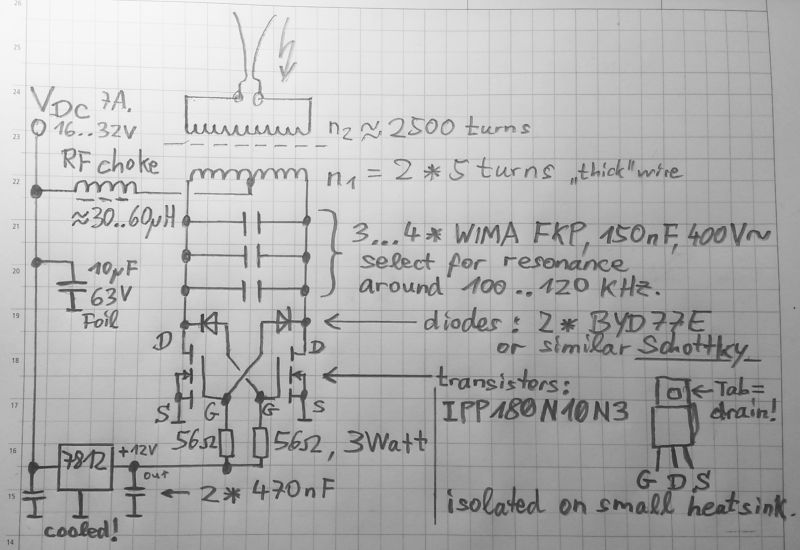 26
25
24
23
22
21
20
19
18
17
16
15
14
VDC 7A.
16..32V
n2 ≈ 2500 turns
RF choke
n1 = 2 * 5 turns „thick" wire
≈30..60µH
3...4 * WIMA FKP, 150nF, 400V~
select for resonance
around 100 .. 120 KHz.
10µF
63V
Foil
diodes: 2 * BYD77E
or similar Schottky
D
D
transistors:
IPP180N10N3
Tab =
drain!
S
G
G
S
56Ω
56Ω, 3Watt
7812
+12V
out
2 * 470nF
cooled!
G D S
isolated on small heatsink.